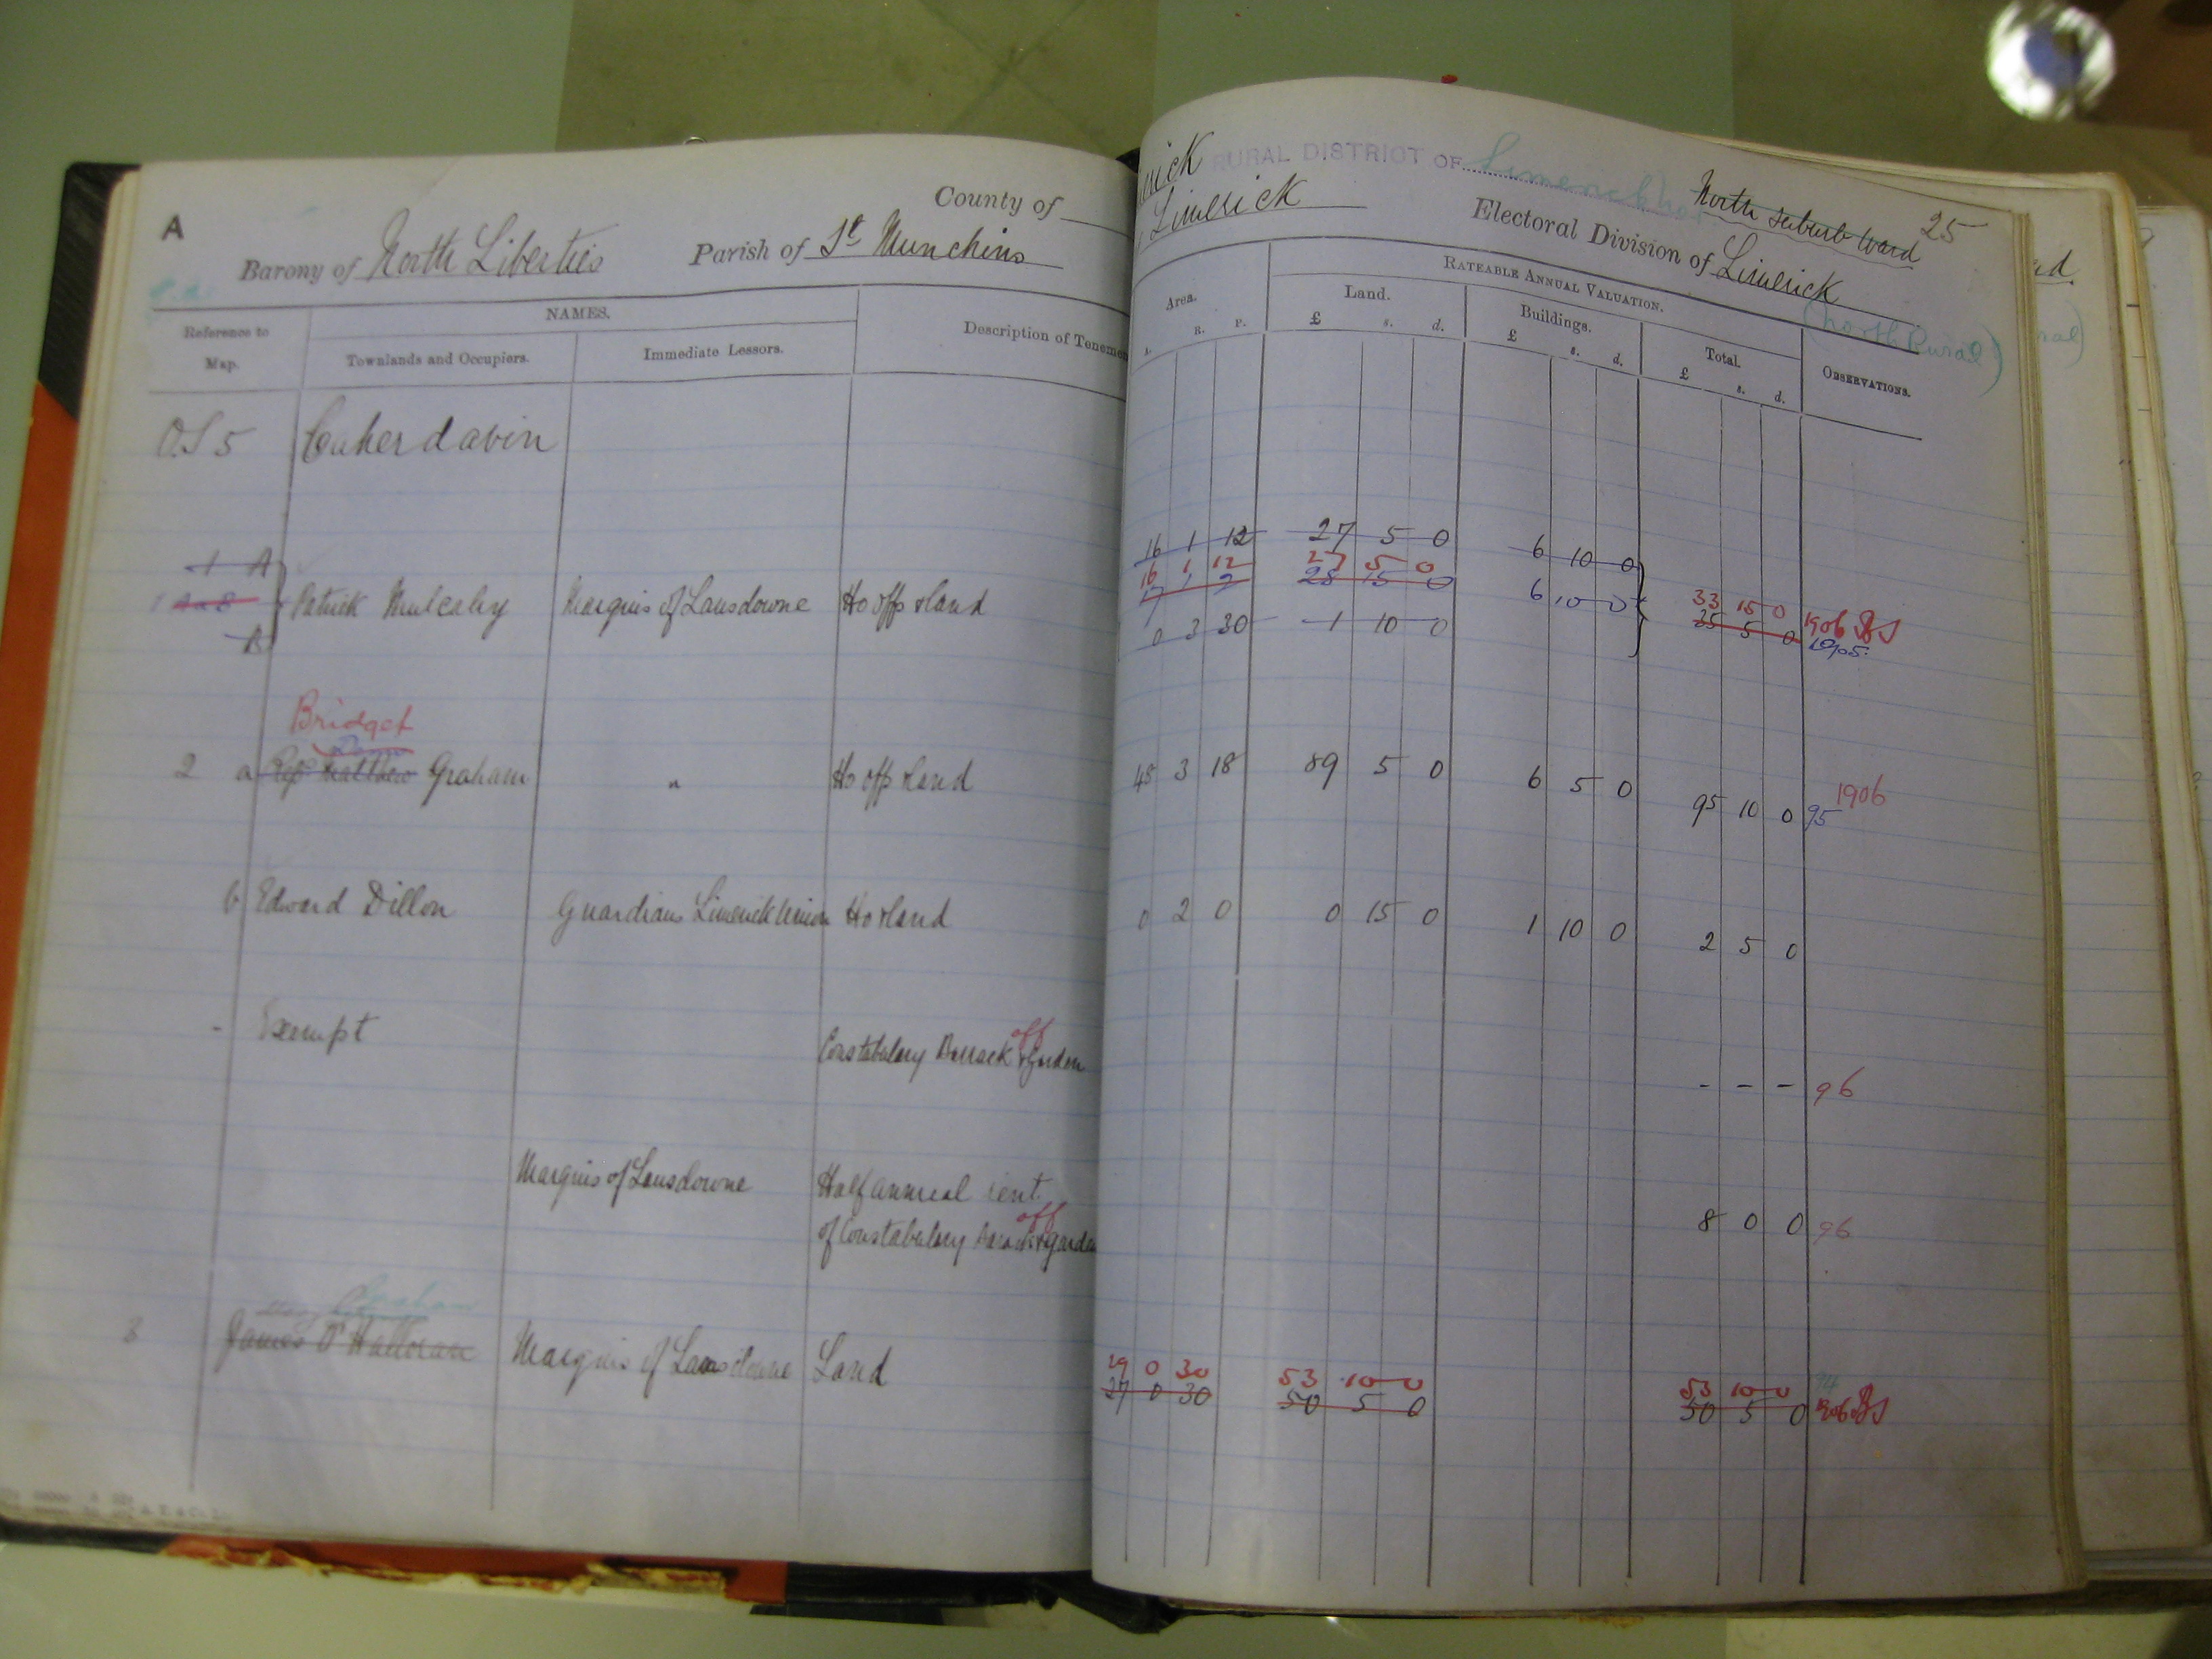 A
County of
Barony of North Liberties Parish of St Munchins
Reference to Map.
NAMES.
Townlands and Occupiers.
Immediate Lessors.
Description of Tenemen
erick RURAL DISTRICT OF Limerick No1
Limerick
North Suburb Ward 25
Electoral Division of Limerick
(North Rural)
Area.
A. R. P.
RATEABLE ANNUAL VALUATION.
Land.
£ s. d.
Buildings.
£ s. d.
Total.
£ s. d.
OBSERVATIONS.
O.S 5 Caherdavin
1 A 16 1 12 27 5 0 6 10 0
16 1 12 27 5 0
1 A a B Patrick Mulcahy Marquis of Lansdowne Ho offs & land 17 1 2 28 15 0 6 10 0 33 15 0 1906
B 0 3 30 1 10 0 35 5 0 1905
Bridget
2 a Reps Matthew Graham " Ho offs & land 48 3 18 89 5 0 6 5 0 95 10 0 95 1906
b Edward Dillon Guardians Limerick Union Ho & land 0 2 0 0 15 0 1 10 0 2 5 0
- Exempt Constabulary Barrack off & Garden - - - 96
Marquis of Lansdowne Half annual rent
of Constabulary Barrack off & garden 8 0 0 96
Graham
29 0 30 53 10 0 53 10 0
3 James O'Halloran Marquis of Lansdowne Land 27 0 30 50 5 0 50 5 0 1906